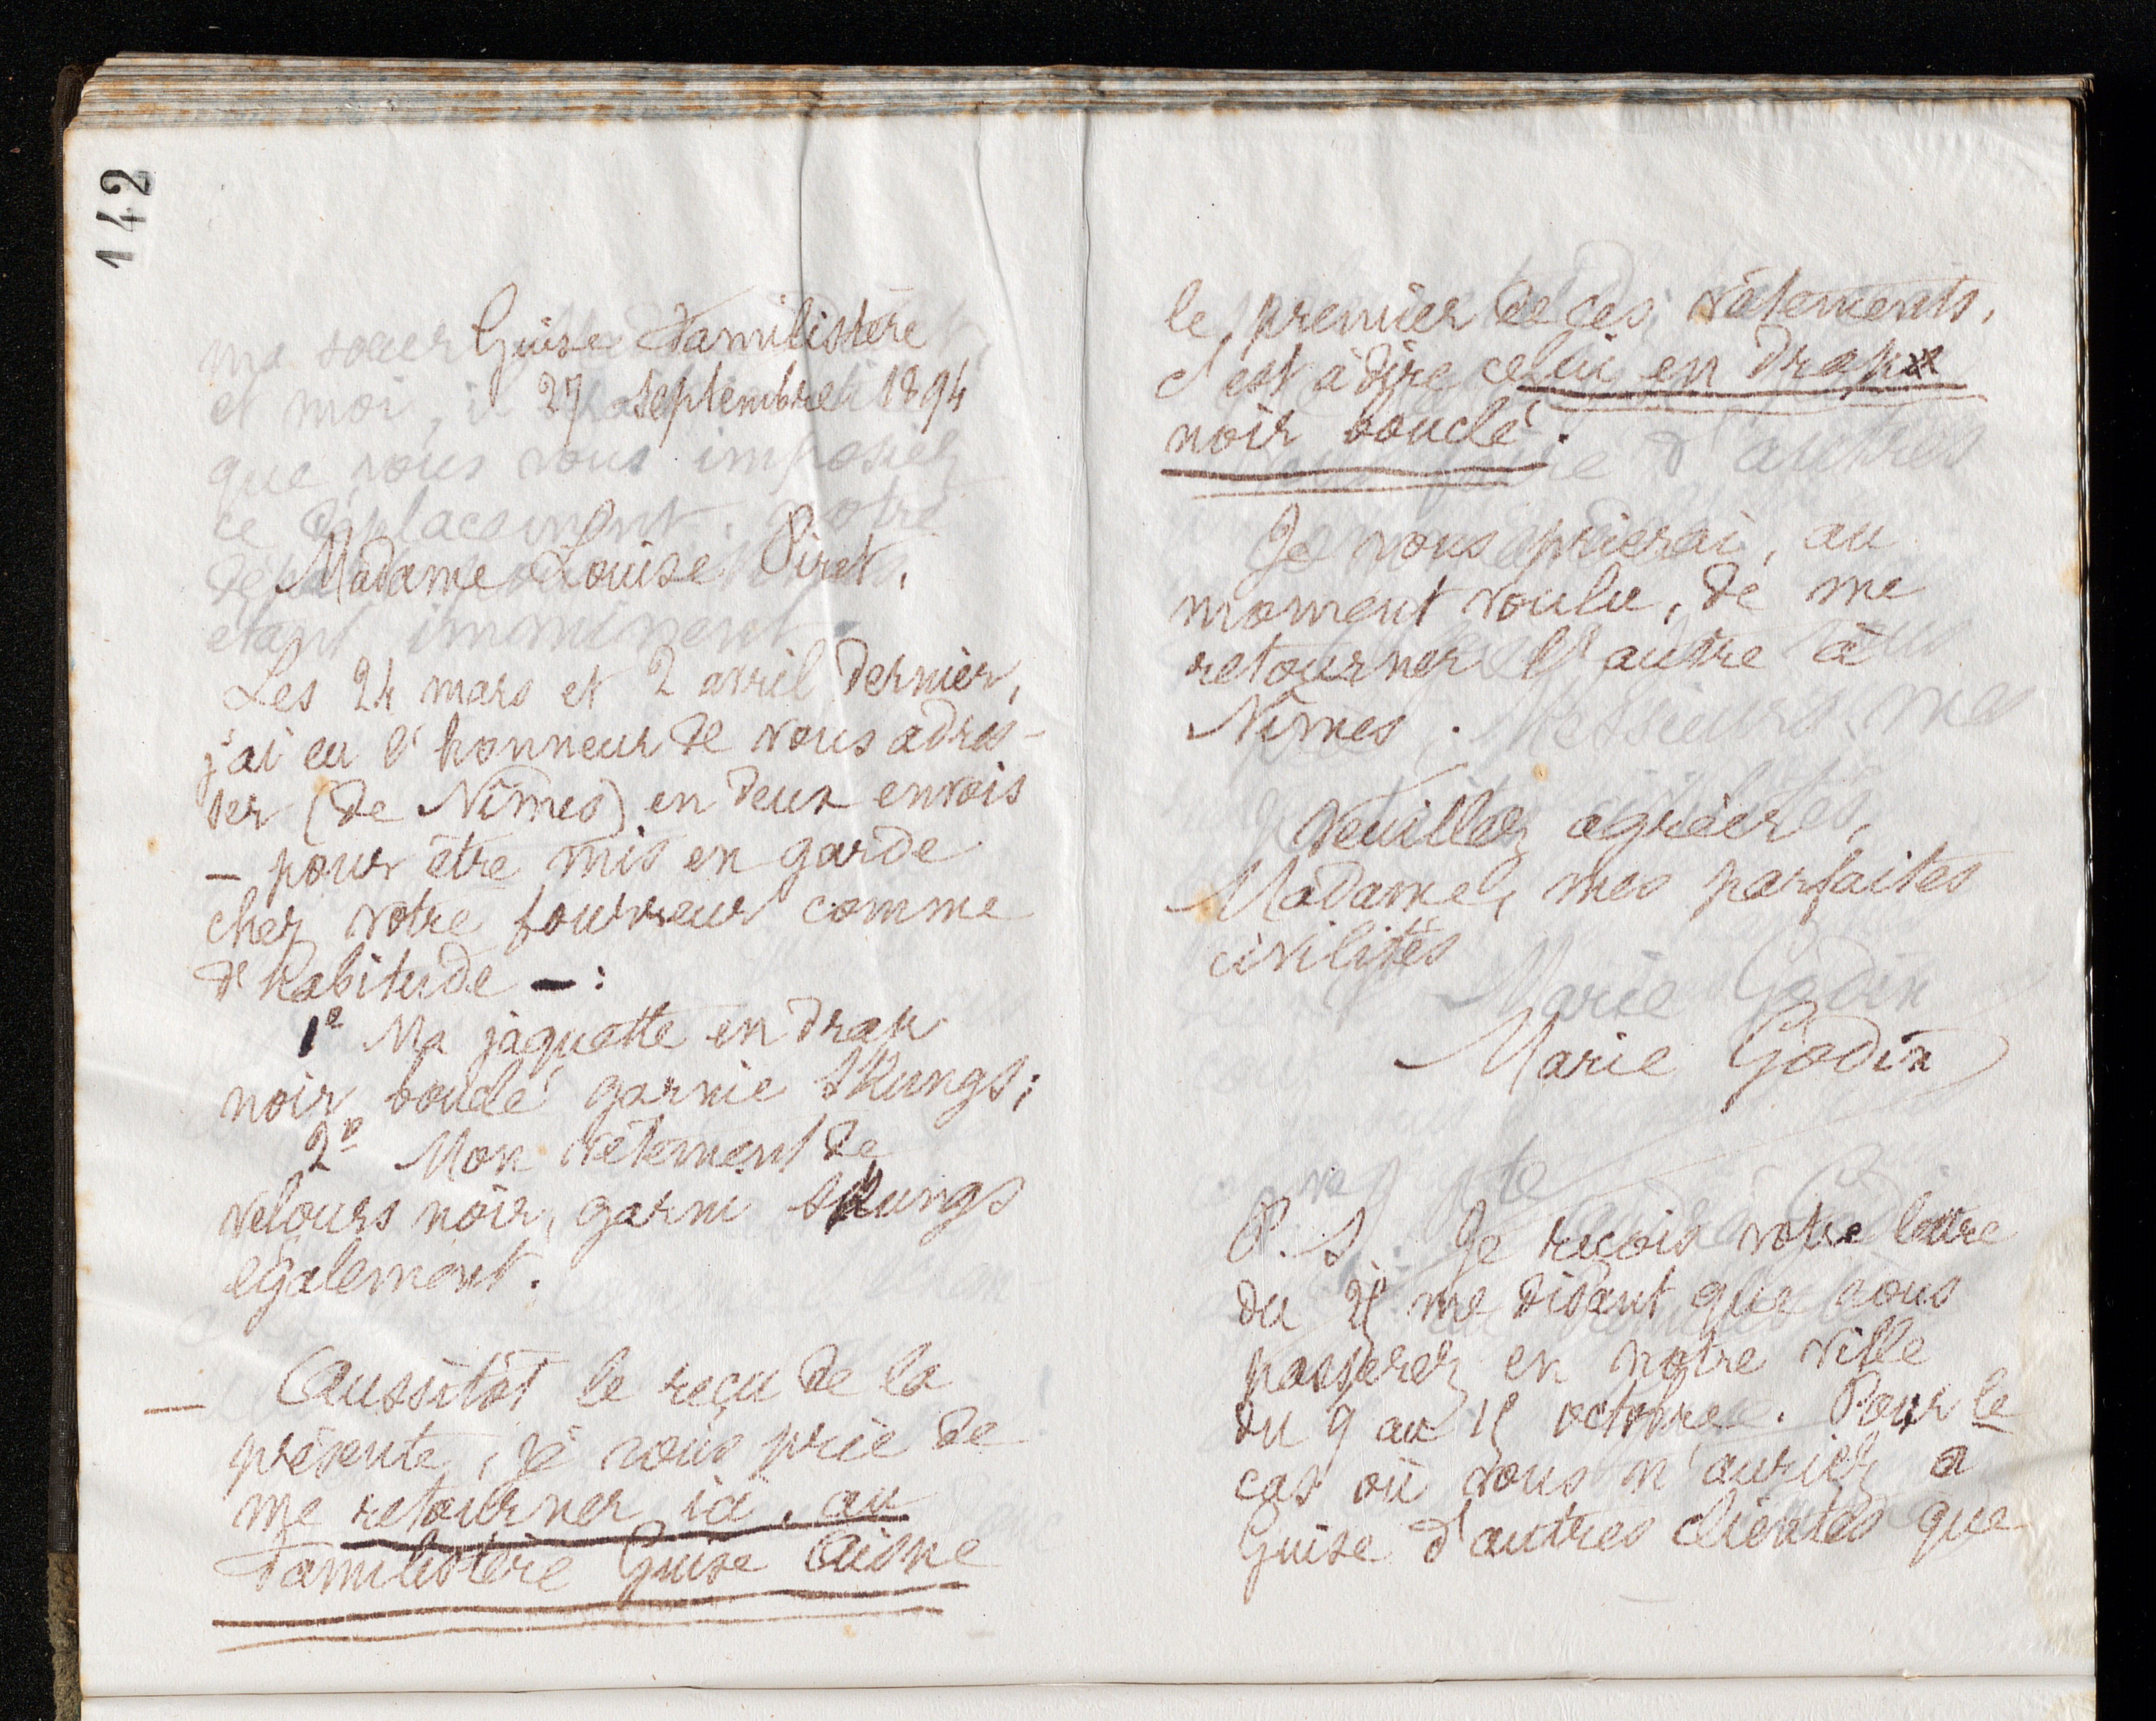 142
Guise Familistère
27 septembre 1894
Madame Louise Piret,
Les 24 mars et 2 avril dernier,
j'ai eu l'honneur de vous adres-
ser (de Nîmes) en deux envois
— pour être mis en garde
chez votre fourreur comme
d'habitude — :
1º Ma jaquette en drap
noir bouclé garnie skungs ;
2º Mon vêtement de
velours noir, garni skungs
également.
— Aussitôt le reçu de la
présente, je vous prie de
me retourner ici, au
Familistère Guise Aisne
le premier de ces vêtements,
c'est à dire celui en drap
noir bouclé.
Je vous prierai, au
moment voulu, de me
retourner l'autre à
Nîmes.
Veuillez agréer,
Madame, mes parfaites
civilités
Marie Godin
P. S. Je reçois votre lettre
du me disant que vous
passerez en notre ville
du 9 au 15 octobre. Pour le
cas où vous n'auriez a
Guise d'autres clientes que
ma soeur
et moi,
que vous vous imposiez
ce déplacement. notre
étant imminent.